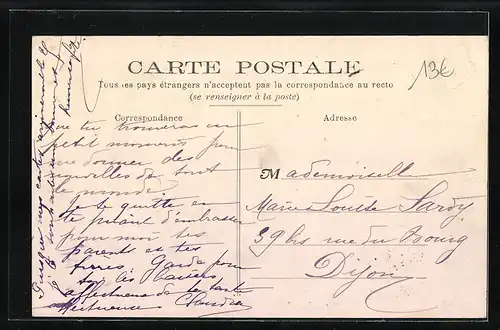 CARTE POSTALE
13€
Tous les pays étrangers n'acceptent pas la correspondance au recto
(se renseigner à la poste)
Correspondance
Adresse
que tu trouveras un
petit moment pour
me donner des
nouvelles de tout
le monde.
Je te quitte en
te priant d'embrasser
pour moi tes
parents et tes
frères. Garde pour
toi les baisers
de ta tante
Claudia
Mademoiselle
Marie Louise Sardy
39 bis rue du Bourg
Dijon